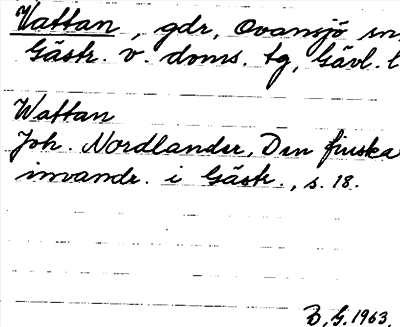 Vattan, gdr, Ovansjö sn,
Gästr. v. doms. tg, Gävl. l
Wattan
Joh. Nordlander, Den finska
invandr. i Gästr., s. 18.
B. G. 1963.